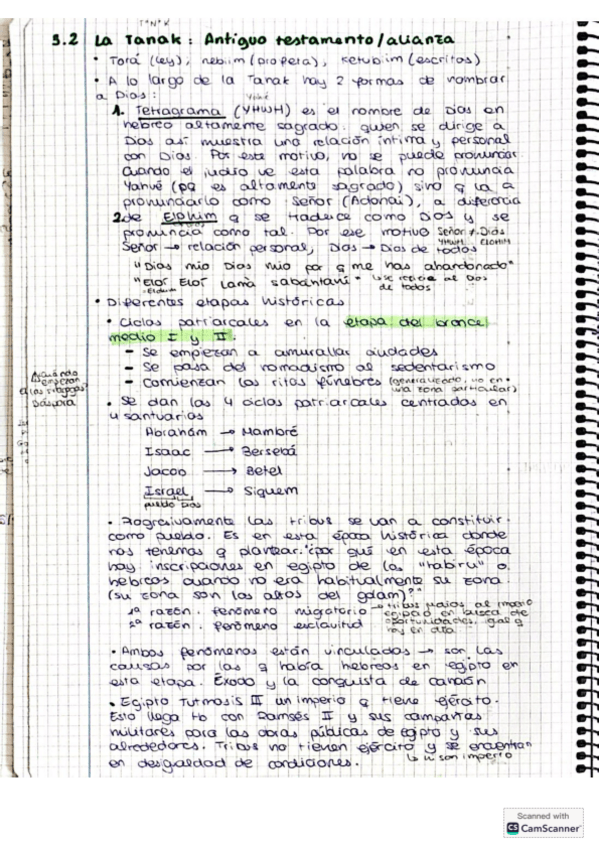 TANAK
3.2 La Tanak: Antiguo testamento/alianza
• Torá (ley), nebiim (profera), ketubiim (escritos)
• A lo largo de la Tanak hay 2 formas de nombrar
a Dios:
Yahvé
1. Tetragrama (YHWH) es el nombre de Dios en
hebreo altamente sagrado. quien se dirige a
Dios así muestra una relación íntima y personal
con Dios. Por este motivo, no se puede pronunciar.
Cuando el judío ve esta palabra no pronuncia
Yahvé (pq es altamente sagrado) sino q la a
pronunciarlo como Señor (Adonai), a diferencia
2. de Elohim q se traduce como Dios y se
pronuncia como tal. Por ese motivo Señor ≠ Dios
YHWH ELOHIM
Señor → relación personal, Dios → Dios de todos
"Dios mio Dios mio por q me has abandonado"
"Eloï Eloï Lama sabantani" ↳ se refiere al Dios
de todos
• Diferentes etapas históricas
• Ciclos patriarcales en la etapa del bronce
medio I y II:
- Se empiezan a amurallar ciudades
- Se pasa del nomadismo al sedentarismo
- Comienzan los ritos fúnebres (generalizado, no en
una zona particular)
• Se dan las 4 ciclos patriarcales centrados en
4 santuarios
Abraham → Mambré
Isaac → Bersebá
Jacob → Betel
Israel → Siquem
pueblo Dios
¿cuándo
empiezan
las sinagogas?
Diáspora
• Progresivamente las tribus se van a constituir
como pueblo. Es en esta época histórica donde
nos tenemos q plantear: "¿por qué en esta época
hay inscripciones en egipto de los "habiru" o
hebreos cuando no era habitualmente su zona
(su zona son los altos del golam)?"
1ª razón. fenómeno migratorio → tribus viajas al imperio
egipcio en busca de
oportunidades, igual q
hoy en día
2ª razón. fenómeno esclavitud
• Ambos fenómenos están vinculados → son las
causas por las q había hebreos en egipto en
esta etapa. Éxodo y la conquista de canaán
• Egipto Tutmosis III un imperio q tiene ejército.
Esto llega tb con Ramsés II y sus campañas
militares para las obras públicas de egipto y sus
alrededores. Tribus no tienen ejército y se encuentran
en desigualdad de condiciones. ↳ ni son imperio
Scanned with
CS CamScanner